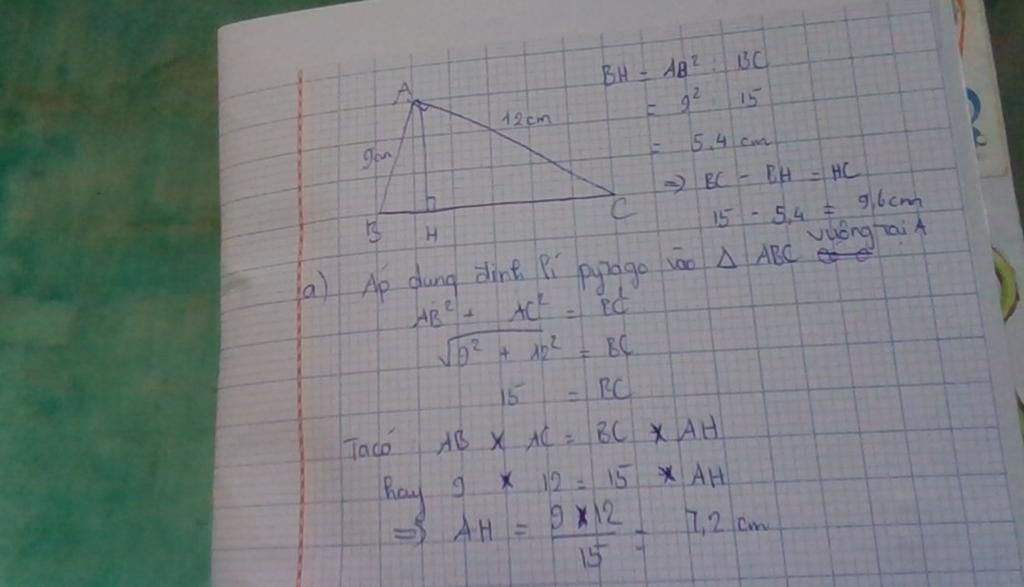 A
12cm
9cm
B
H
C
BH = AB² : BC
= 9² : 15
= 5,4 cm
=> BC - BH = HC
15 - 5,4 = 9,6cm
a) Áp dụng định lí pytago vào Δ ABC vuông tại A
AB² + AC² = BC²
√9² + 12² = BC
15 = BC
Ta có AB x AC = BC x AH
hay 9 x 12 = 15 x AH
=> AH = 9 x 12 / 15 = 7,2 cm